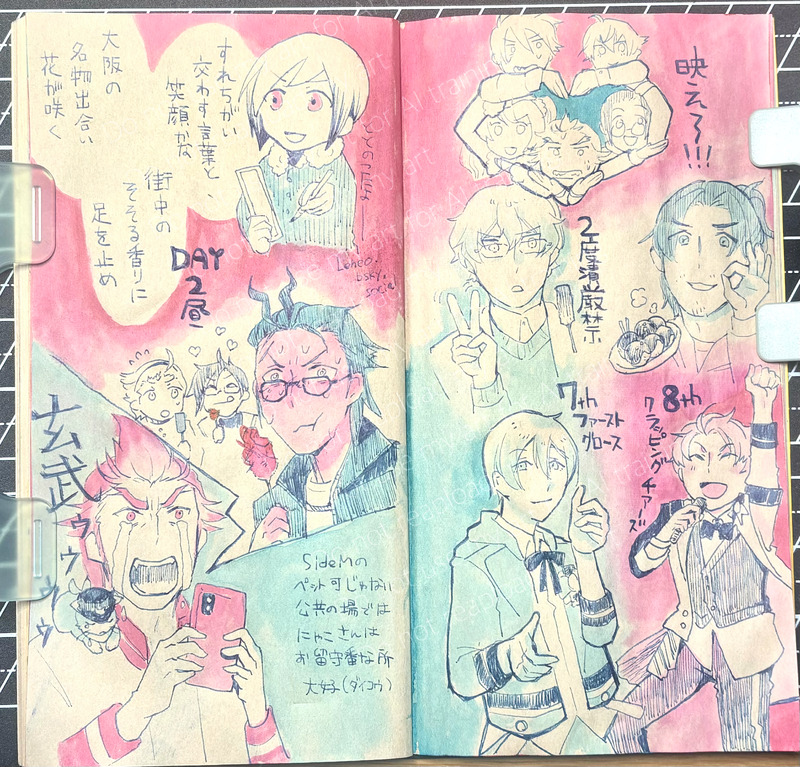 すれちがい
交わす言葉と、
笑顔かな
大阪の
名物出合い
花が咲く
街中の
そそる香りに
足を止め
DAY
2
昼
玄武ゥゥゥゥ
SideMの
ペット可じゃない
公共の場では
にゃこさんは
お留守番な所
大好(ダイコウ)
映えろ!!!
2度漬厳禁
7th
ファースト
グロース
8th
クラッピング
チアーズ